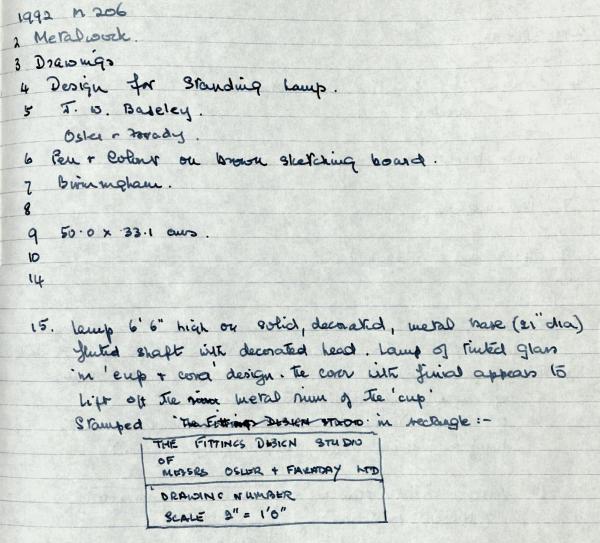 1992 M 206
2 Metalwork.
3 Drawings
4 Design for Standing Lamp.
5 T. W. Baseley.
Osler + Faraday.
6 Pen + Colour on brown sketching board.
7 Birmingham.
8
9 50.0 x 33.1 cms.
10
14
15. Lamp 6'6" high on solid, decorated, metal base (21" dia)
fluted shaft with decorated head. Lamp of tinted glass
in 'cup + cover' design. The cover with finial appears to
lift off the metal rim of the 'cup'
Stamped The Fittings DESIGN STUDIO in rectangle :-
THE FITTINGS DESIGN STUDIO
OF
MESSRS OSLER + FARADAY LTD
DRAWING NUMBER
SCALE 2" = 1'0"